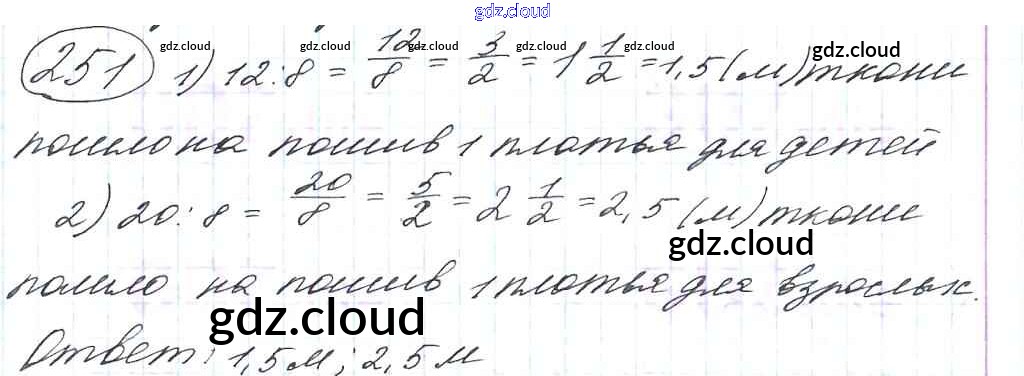 gdz.cloud
251 1) 12:8 = 12/8 = 3/2 = 1 1/2 = 1,5 (м) ткани
gdz.cloud gdz.cloud gdz.cloud gdz.cloud gdz.cloud
пошло на пошив 1 платья для детей
2) 20:8 = 20/8 = 5/2 = 2 1/2 = 2,5 (м) ткани
gdz.cloud
пошло на пошив 1 платья для взрослых.
gdz.cloud
Ответ: 1,5 м; 2,5 м